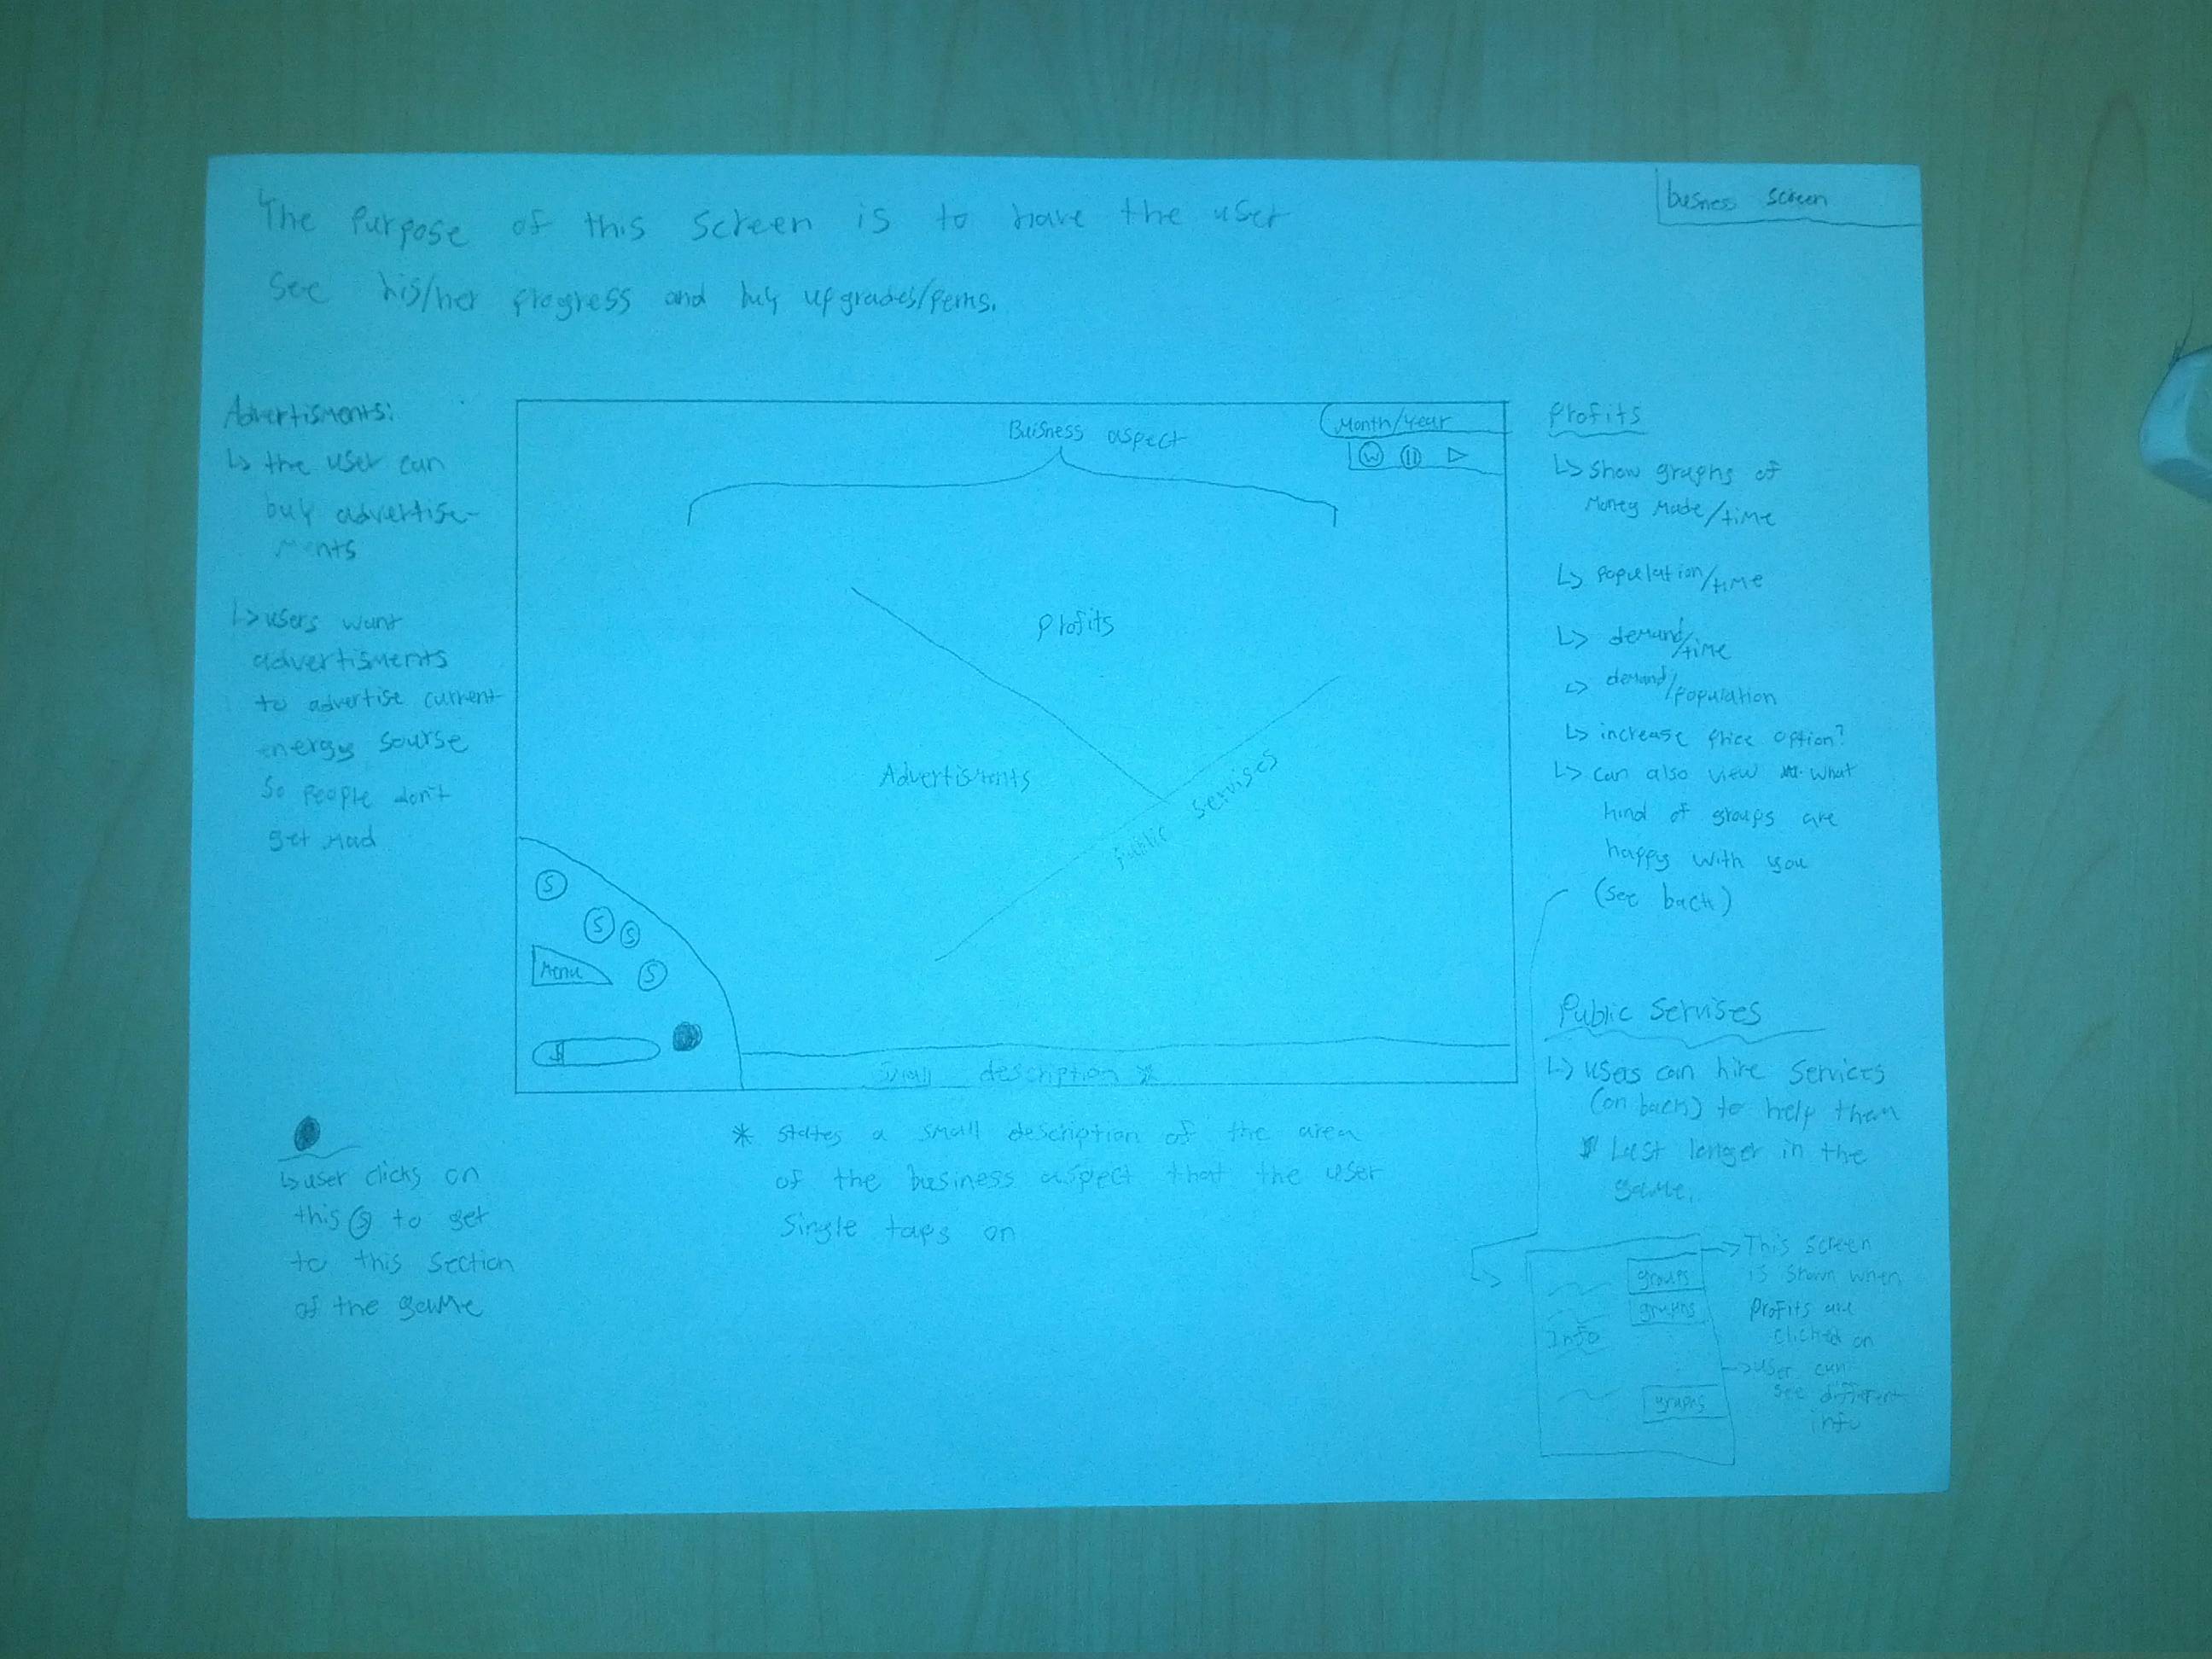 busness screen
The Purpose of this screen is to have the user
see his/her progress and buy upgrades/perks.
Advertisments:
↳ the user can
buy advertise-
ments
↳ users want
advertisments
to advertise current
energy sourse
so people don't
get mad
Buisness aspect
Month/Year
W
Profits
Advertisments
Public Servises
S
S
S
S
Menu
$
Small description *
* states a small description of the area
of the business aspect that the user
single taps on
↳ user clicks on
this S to get
to this section
of the game
Profits
↳ show graphs of
money made/time
↳ population/time
↳ demand/time
↳ demand/population
↳ increase price option?
↳ can also view what
kind of groups are
happy with you
(see back)
Public Servises
↳ users can hire services
(on back) to help them
last longer in the
game.
groups
graphs
Info
graphs
→ This screen
is shown when
profits are
clicked on
→ user can
see different
info